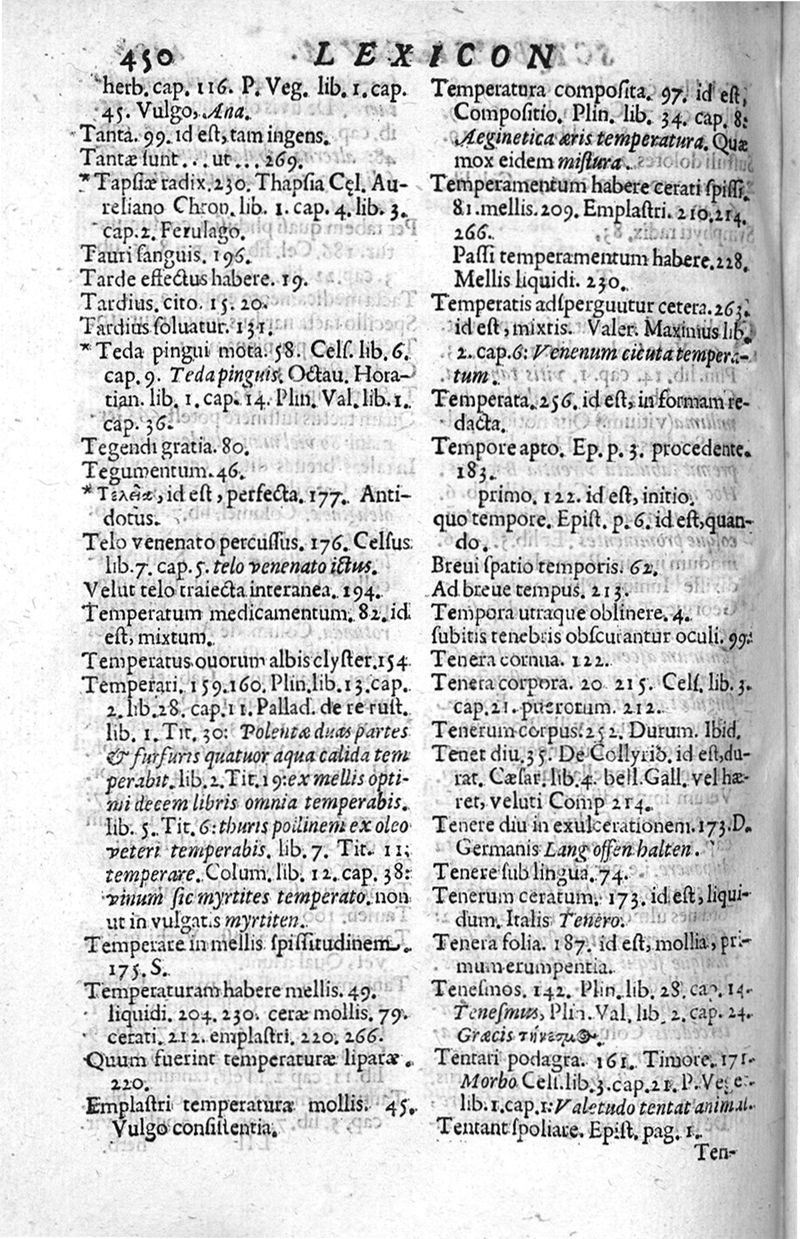 450 LEXICON
herb. cap. 116. P. Veg. lib. 1. cap.
45. Vulgo, Ana.
Tanta. 99. id est, tam ingens.
Tantæ ſunt... ut... 269.
*Tapſiæ radix. 230. Thapſia Cęl. Au-
reliano Chron. lib. 1. cap. 4. lib. 3.
cap. 2. Ferulago.
Tauri ſanguis. 196.
Tarde effectus habere. 19.
Tardius. cito. 15. 20.
Tardius ſoluatur. 131.
*Teda pingui mota. 58. Celſ. lib. 6.
cap. 9. Teda pinguis. Octau. Hora-
tian. lib. 1. cap. 14. Plin. Val. lib. 1.
cap. 36.
Tegendi gratia. 80.
Tegumentum. 46.
*Τελεία, id est, perfecta. 177. Anti-
dotus.
Telo venenato percuſſus. 176. Celſus
lib. 7. cap. 5. telo venenato ictus.
Velut telo traiecta interanea. 194.
Temperatum medicamentum. 82. id
eſt, mixtum.
Temperatus ouorum albis clyſter. 154
Temperari. 159. 160. Plin. lib. 13. cap.
2. lib. 28. cap. 11. Pallad. de re ruſt.
lib. 1. Tit. 30: Polentæ duas partes
& furfuris quatuor aqua calida tem
perabit. lib. 2. Tit. 19: ex mellis opti-
mi decem libris omnia temperabis.
lib. 5. Tit. 6: thuris pollinem ex oleo
veteri temperabis. lib. 7. Tit. 11:
temperare. Colum. lib. 12. cap. 38:
vinum ſic myrtites temperato. non
ut in vulgatis myrtiten.
Temperare in mellis ſpiſſitudinem.
175. S.
Temperaturam habere mellis. 49.
liquidi. 204. 230. ceræ mollis. 79.
cerati. 212. emplaſtri. 220. 266.
Quum fuerint temperaturæ liparæ.
220.
Emplaſtri temperatura mollis. 45.
Vulgo conſiſtentia.
Temperatura compoſita. 97. id eſt,
Compoſitio. Plin. lib. 34. cap. 8:
Aeginetica æris temperatura. Quæ
mox eidem miſtura.
Temperamentum habere cerati ſpiſſi.
81. mellis. 209. Emplaſtri. 210. 214.
266.
Paſſi temperamentum habere. 228.
Mellis liquidi. 230.
Temperatis adſperguutur cetera. 263.
id eſt, mixtis. Valer. Maximus lib.
2. cap. 6: Venenum cicuta tempera-
tum.
Temperata. 256. id eſt, in formam re-
dacta.
Tempore apto. Ep. p. 3. procedente.
183.
primo. 122. id eſt, initio.
quo tempore. Epiſt. p. 6. id eſt, quan-
do.
Breui ſpatio temporis. 62.
Ad breue tempus. 213.
Tempora utraque oblinere. 4.
ſubitis tenebris obſcurantur oculi. 99.
Tenera cornua. 122.
Tenera corpora. 20 215. Celſ. lib. 3.
cap. 21. puerorum. 212.
Tenerum corpus. 252. Durum. Ibid.
Tenet diu. 35. De Collyrio. id eſt, du-
rat. Cæſar. lib. 4. bell. Gall. vel hæ-
ret, veluti Comp 214.
Tenere diu in exulcerationem. 173. D.
Germanis Lang offen halten.
Tenere ſub lingua. 74.
Tenerum ceratum. 173. id eſt, liqui-
dum. Italis Tenero.
Tenera folia. 187. id eſt, mollia, pri-
mum erumpentia.
Teneſmos. 142. Plin. lib. 28. cap. 14.
Teneſmus, Plin. Val. lib. 2. cap. 24.
Græcis
Tentari podagra. 161. Timore. 171.
Morbo Celſ. lib. 3. cap. 21. P. Vege.
lib. 1. cap. 1: Valetudo tentat animal.
Tentant ſpoliare. Epiſt. pag. 1.
Ten-